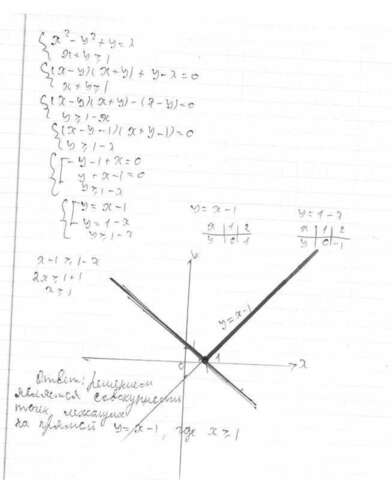 x² - y² + y = x
x + y ≥ 1
(x-y)(x+y) + y - x = 0
x + y ≥ 1
(x-y)(x+y) - (x-y) = 0
y ≥ 1-x
(x-y-1)(x+y-1) = 0
y ≥ 1-x
-y-1+x=0
y+x-1=0
y ≥ 1-x
y=x-1
y=1-x
y ≥ 1-x
y=x-1
x 1 2
y 0 1
y=1-x
x 1 2
y 0 -1
x-1 ≥ 1-x
2x ≥ 1+1
x ≥ 1
y=x-1
0 1 x
Ответ: решением
является совокупность
точек, лежащих
на прямой y=x-1, где x ≥ 1